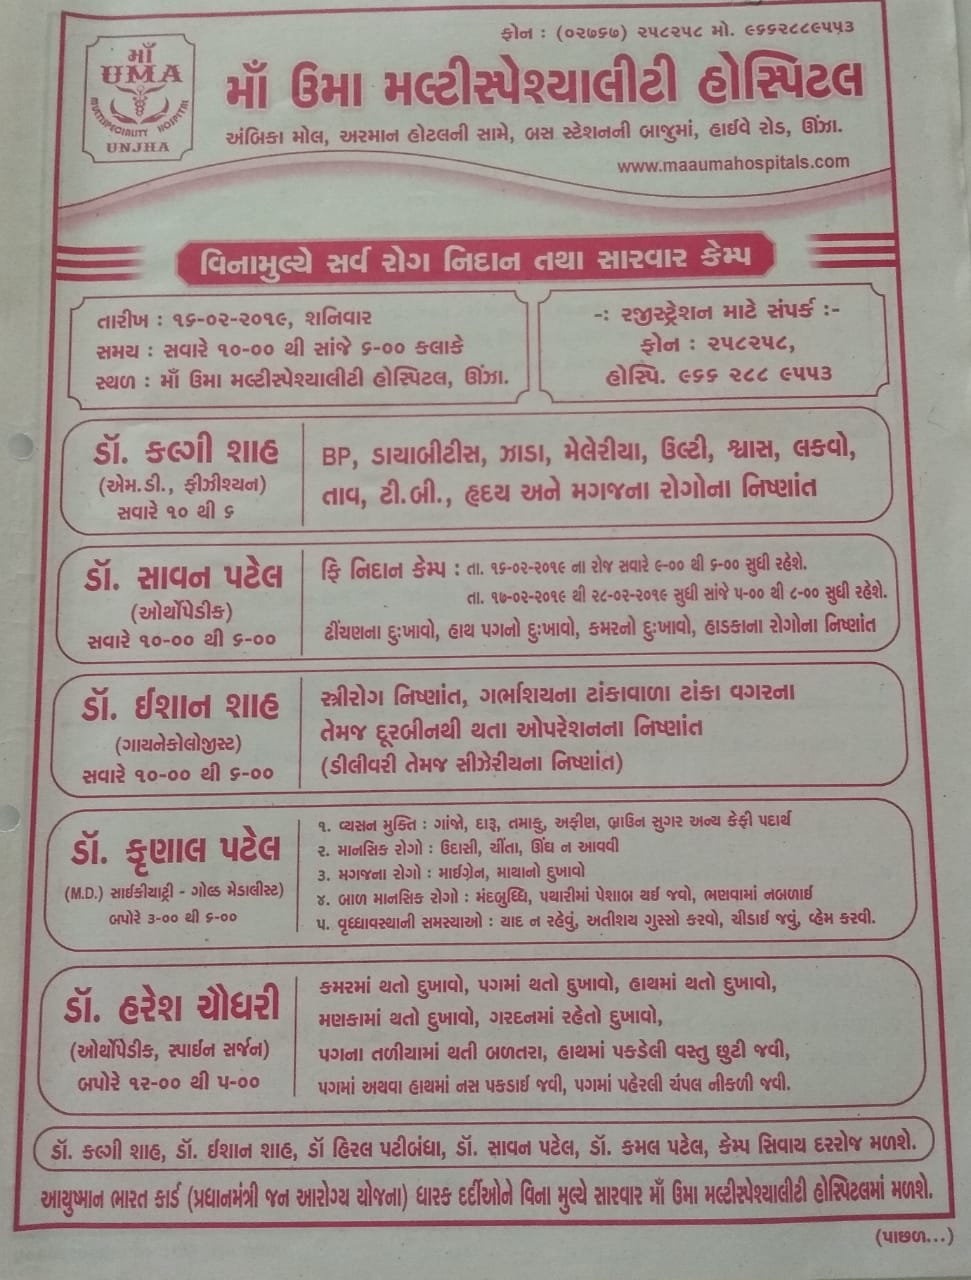 ફોન : (૦૨૭૬૭) ૨૫૮૨૫૮ મો. ૯૬૬૨૮૮૯૫૫૩
માઁ
UMA
MULTISPECIALITY HOSPITAL
UNJHA
માઁ ઉમા મલ્ટીસ્પેશ્યાલીટી હોસ્પિટલ
અંબિકા મોલ, અરમાન હોટલની સામે, બસ સ્ટેશનની બાજુમાં, હાઈવે રોડ, ઊંઝા.
www.maaumahospitals.com
વિનામુલ્યે સર્વ રોગ નિદાન તથા સારવાર કેમ્પ
તારીખ : ૧૬-૦૨-૨૦૧૯, શનિવાર
સમય : સવારે ૧૦-૦૦ થી સાંજે ૬-૦૦ કલાકે
સ્થળ : માઁ ઉમા મલ્ટીસ્પેશ્યાલીટી હોસ્પિટલ, ઊંઝા.
-: રજીસ્ટ્રેશન માટે સંપર્ક :-
ફોન : ૨૫૮૨૫૮,
હોસ્પિ. ૯૬૬ ૨૮૮ ૯૫૫૩
ડૉ. કલ્ગી શાહ
(એમ.ડી., ફીઝીશ્યન)
સવારે ૧૦ થી ૬
BP, ડાયાબીટીસ, ઝાડા, મેલેરીયા, ઉલ્ટી, શ્વાસ, લકવો,
તાવ, ટી.બી., હૃદય અને મગજના રોગોના નિષ્ણાંત
ડૉ. સાવન પટેલ
(ઓર્થોપેડીક)
સવારે ૧૦-૦૦ થી ૬-૦૦
ફ્રિ નિદાન કેમ્પ : તા. ૧૬-૦૨-૨૦૧૯ ના રોજ સવારે ૯-૦૦ થી ૬-૦૦ સુધી રહેશે.
તા. ૧૭-૦૨-૨૦૧૯ થી ૨૮-૦૨-૨૦૧૯ સુધી સાંજે ૫-૦૦ થી ૮-૦૦ સુધી રહેશે.
ઢીંચણના દુઃખાવો, હાથ પગનો દુઃખાવો, કમરનો દુઃખાવો, હાડકાના રોગોના નિષ્ણાંત
ડૉ. ઈશાન શાહ
(ગાયનેકોલોજીસ્ટ)
સવારે ૧૦-૦૦ થી ૬-૦૦
સ્ત્રીરોગ નિષ્ણાંત, ગર્ભાશયના ટાંકાવાળા ટાંકા વગરના
તેમજ દૂરબીનથી થતા ઓપરેશનના નિષ્ણાંત
(ડીલીવરી તેમજ સીઝેરીયના નિષ્ણાંત)
ડૉ. કૃણાલ પટેલ
(M.D.) સાઈકીયાટ્રી - ગોલ્ડ મેડાલીસ્ટ)
બપોરે ૩-૦૦ થી ૬-૦૦
૧. વ્યસન મુક્તિ : ગાંજો, દારૂ, તમાકુ, અફીણ, બ્રાઉન સુગર અન્ય કેફી પદાર્થ
૨. માનસિક રોગો : ઉદાસી, ચીંતા, ઊંઘ ન આવવી
૩. મગજના રોગો : માઈગ્રેન, માથાનો દુખાવો
૪. બાળ માનસિક રોગો : મંદબુધ્ધિ, પથારીમાં પેશાબ થઈ જવો, ભણવામાં નબળાઈ
૫. વૃધ્ધાવસ્થાની સમસ્યાઓ : યાદ ન રહેવું, અતીશય ગુસ્સો કરવો, ચીડાઈ જવું, વ્હેમ કરવી.
ડૉ. હરેશ ચૌધરી
(ઓર્થોપેડીક, સ્પાઈન સર્જન)
બપોરે ૧૨-૦૦ થી ૫-૦૦
કમરમાં થતો દુખાવો, પગમાં થતો દુખાવો, હાથમાં થતો દુખાવો,
મણકામાં થતો દુખાવો, ગરદનમાં રહેતો દુખાવો,
પગના તળીયામાં થતી બળતરા, હાથમાં પકડેલી વસ્તુ છુટી જવી,
પગમાં અથવા હાથમાં નસ પકડાઈ જવી, પગમાં પહેરલી ચંપલ નીકળી જવી.
ડૉ. કલ્ગી શાહ, ડૉ. ઈશાન શાહ, ડૉ હિરલ પટીબંધા, ડૉ. સાવન પટેલ, ડૉ. કમલ પટેલ, કેમ્પ સિવાય દરરોજ મળશે.
આયુષ્માન ભારત કાર્ડ (પ્રધાનમંત્રી જન આરોગ્ય યોજના) ધારક દર્દીઓને વિના મુલ્યે સારવાર માઁ ઉમા મલ્ટીસ્પેશ્યાલીટી હોસ્પિટલમાં મળશે.
(પાછળ...)